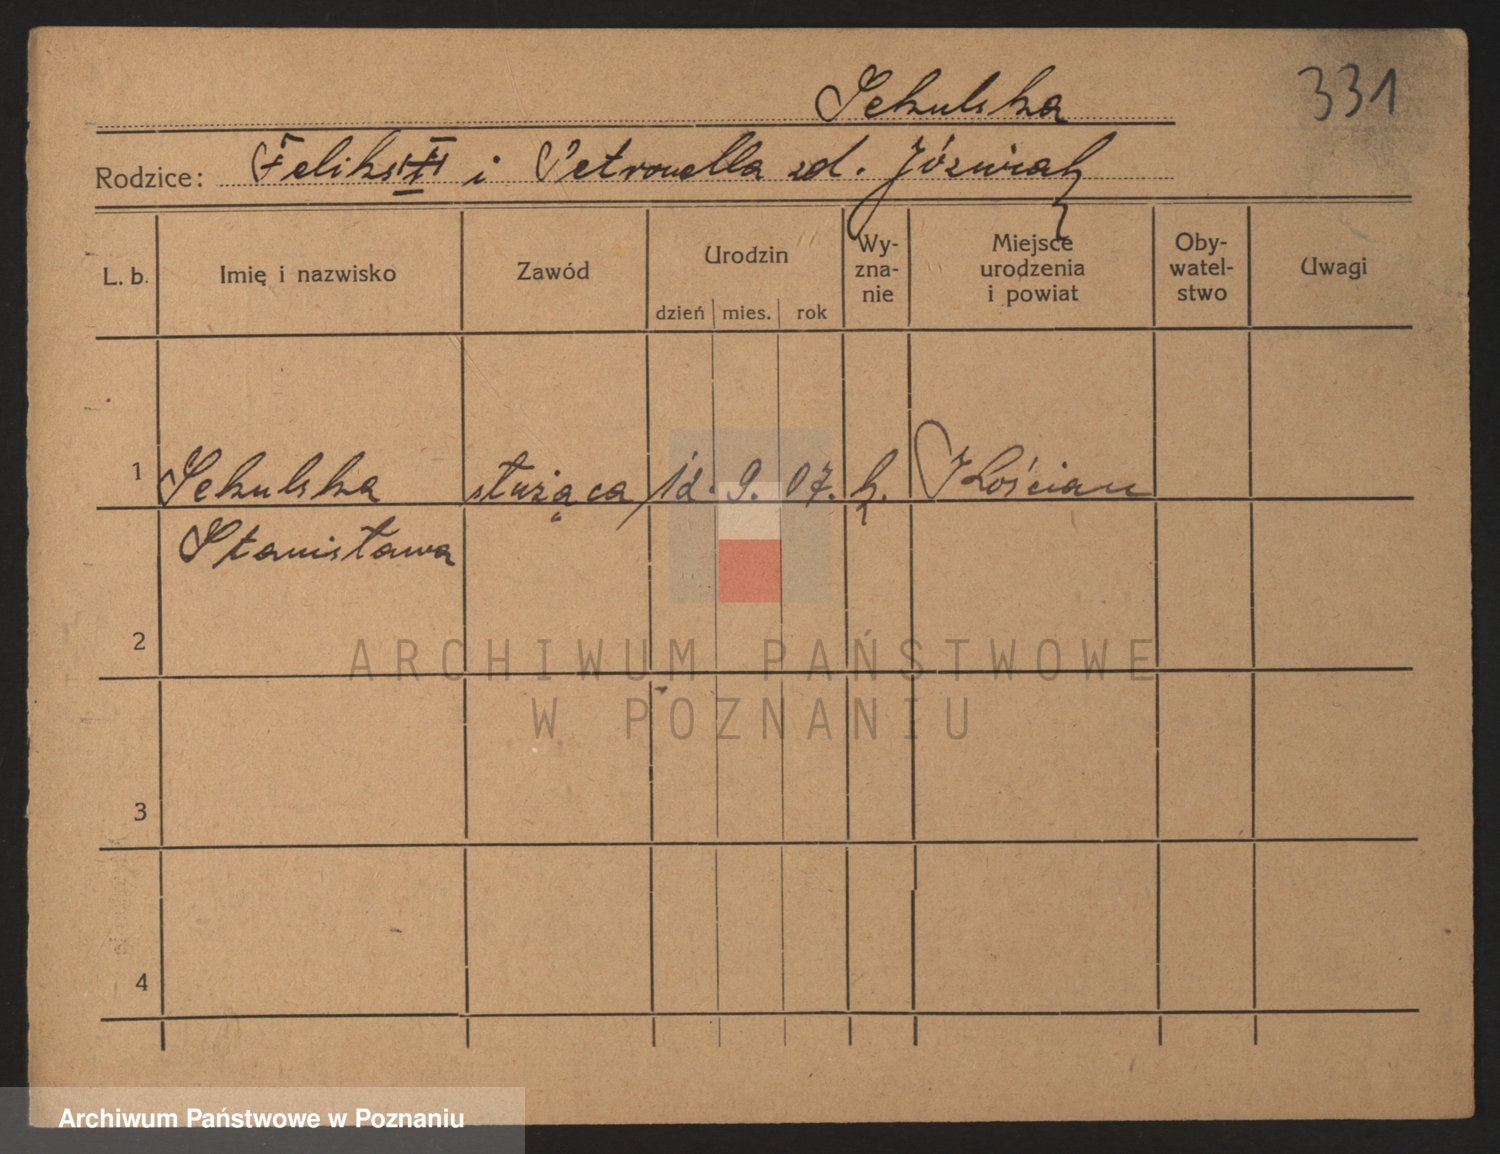 Sekulska
331
Rodzice: Feliks i Petronella zd. Józwiak
L. b. Imię i nazwisko Zawód Urodzin dzień mies. rok Wy-zna-nie Miejsce urodzenia i powiat Oby-watel-stwo Uwagi
1 Sekulska służąca 12. 9. 07. k. Kościan
Stanisława
2
ARCHIWUM PAŃSTWOWE
W POZNANIU
3
4
Archiwum Państwowe w Poznaniu